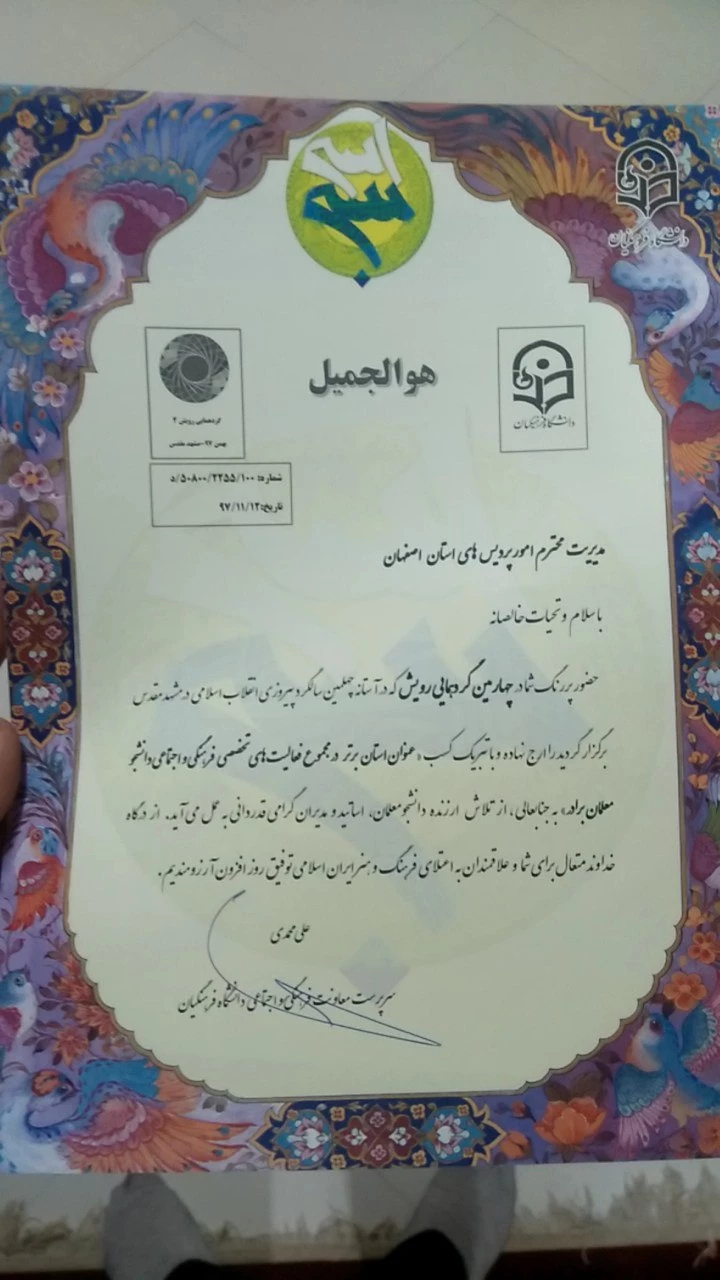 دانشگاه فرهنگیان
هوالجمیل
دانشگاه فرهنگیان
گردهمایی رویش ۴
بهمن ۹۷-مشهد مقدس
شماره: ۵۰۸۰۰/۲۲۵۵/۱۰۰/د
تاریخ: ۹۷/۱۱/۱۲
مدیریت محترم امور پردیس های استان اصفهان
با سلام و تحیات خالصانه
حضور پررنگ شما در چهارمین گردهمایی رویش که در آستانه چهلمین سالگرد پیروزی انقلاب اسلامی در مشهد مقدس
برگزار گردید را ارج نهاده و با تبریک کسب «عنوان استان برتر در مجموع فعالیت های تخصصی فرهنگی و اجتماعی دانشجو
معلمان برادر» به جنابعالی، از تلاش ارزنده دانشجومعلمان، اساتید و مدیران گرامی قدردانی به عمل می آید. از درگاه
خداوند متعال برای شما و علاقمندان به اعتلای فرهنگ و هنر ایران اسلامی توفیق روز افزون آرزومندیم.
علی محمدی
سرپرست معاونت فرهنگی و اجتماعی دانشگاه فرهنگیان